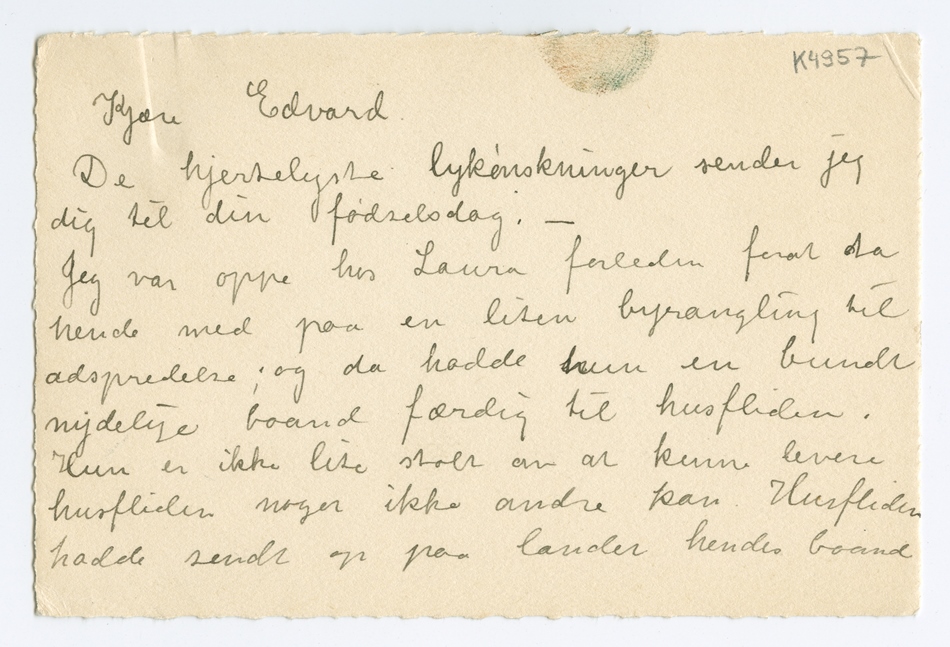 K4957
Kjære Edvard.
De hjerteligste lykønskninger sender jeg
dig til din fødselsdag. —
Jeg var oppe hos Laura forleden forat ta
hende med paa en liten byrangling til
adspredelse; og da hadde hun en bundt
nydelige baand færdig til husfliden.
Hun er ikke lite stolt av at kunne levere
husfliden noget ikke andre kan. Husfliden
hadde sendt op paa landet hendes baand